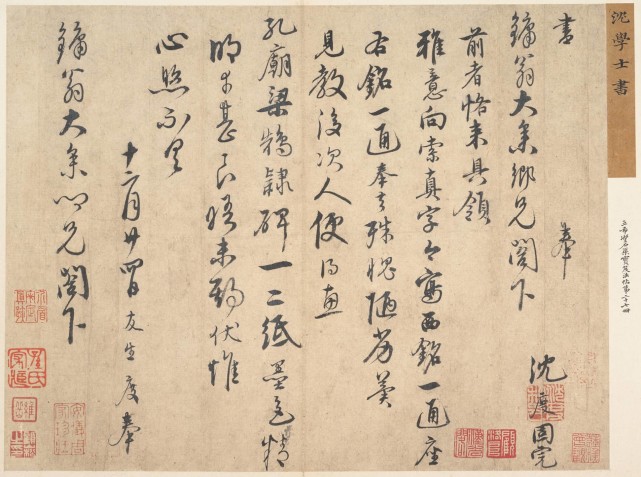 沈學士書
書 奉
鏞翁大參鄉兄閣下
沈度固完
前者恪來具領
雅意向索真字今寫西銘一通座
右銘一通奉去殊愧陋劣冀
見教後次人便乃惠
孔廟梁鵠隸碑一二紙墨色精
明幸甚良晤未期伏惟
心照不具
十二月廿四日友生度奉
鏞翁大參鄉兄閣下